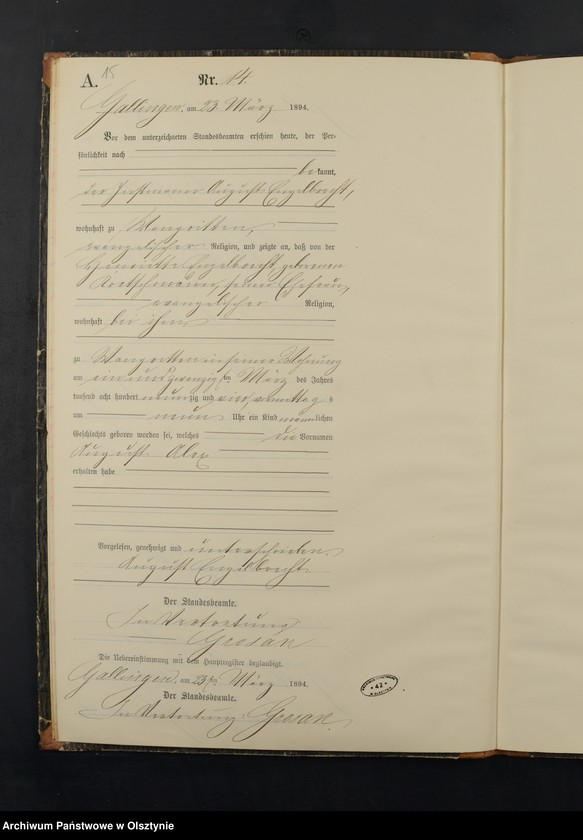 A. 15 Nr. 14.
Gallingen, am 23 März 1894.
Vor dem unterzeichneten Standesbeamten erschien heute, der Per-
sönlichkeit nach
be kannt,
der Instmann August Engelbrecht,
wohnhaft zu Wangritten,
evangelischer Religion, und zeigte an, daß von der
Henriette Engelbrecht geborenen
seiner Ehefrau,
evangelischer Religion,
wohnhaft bei ihm
zu Wangritten in seiner Wohnung
am ein und zwanzigsten März des Jahres
tausend acht hundert neunzig und vier, vormittags
um neun Uhr ein Kind männlichen
Geschlechts geboren worden sei, welches die Vornamen
August
erhalten habe
Vorgelesen, genehmigt und unterschrieben.
August Engelbrecht
Der Standesbeamte.
In Vertretung
Die Uebereinstimmung mit dem Hauptregister beglaubigt.
Gallingen, am 23ten März 1894.
Der Standesbeamte.
In Vertretung
42
Archiwum Państwowe w Olsztynie